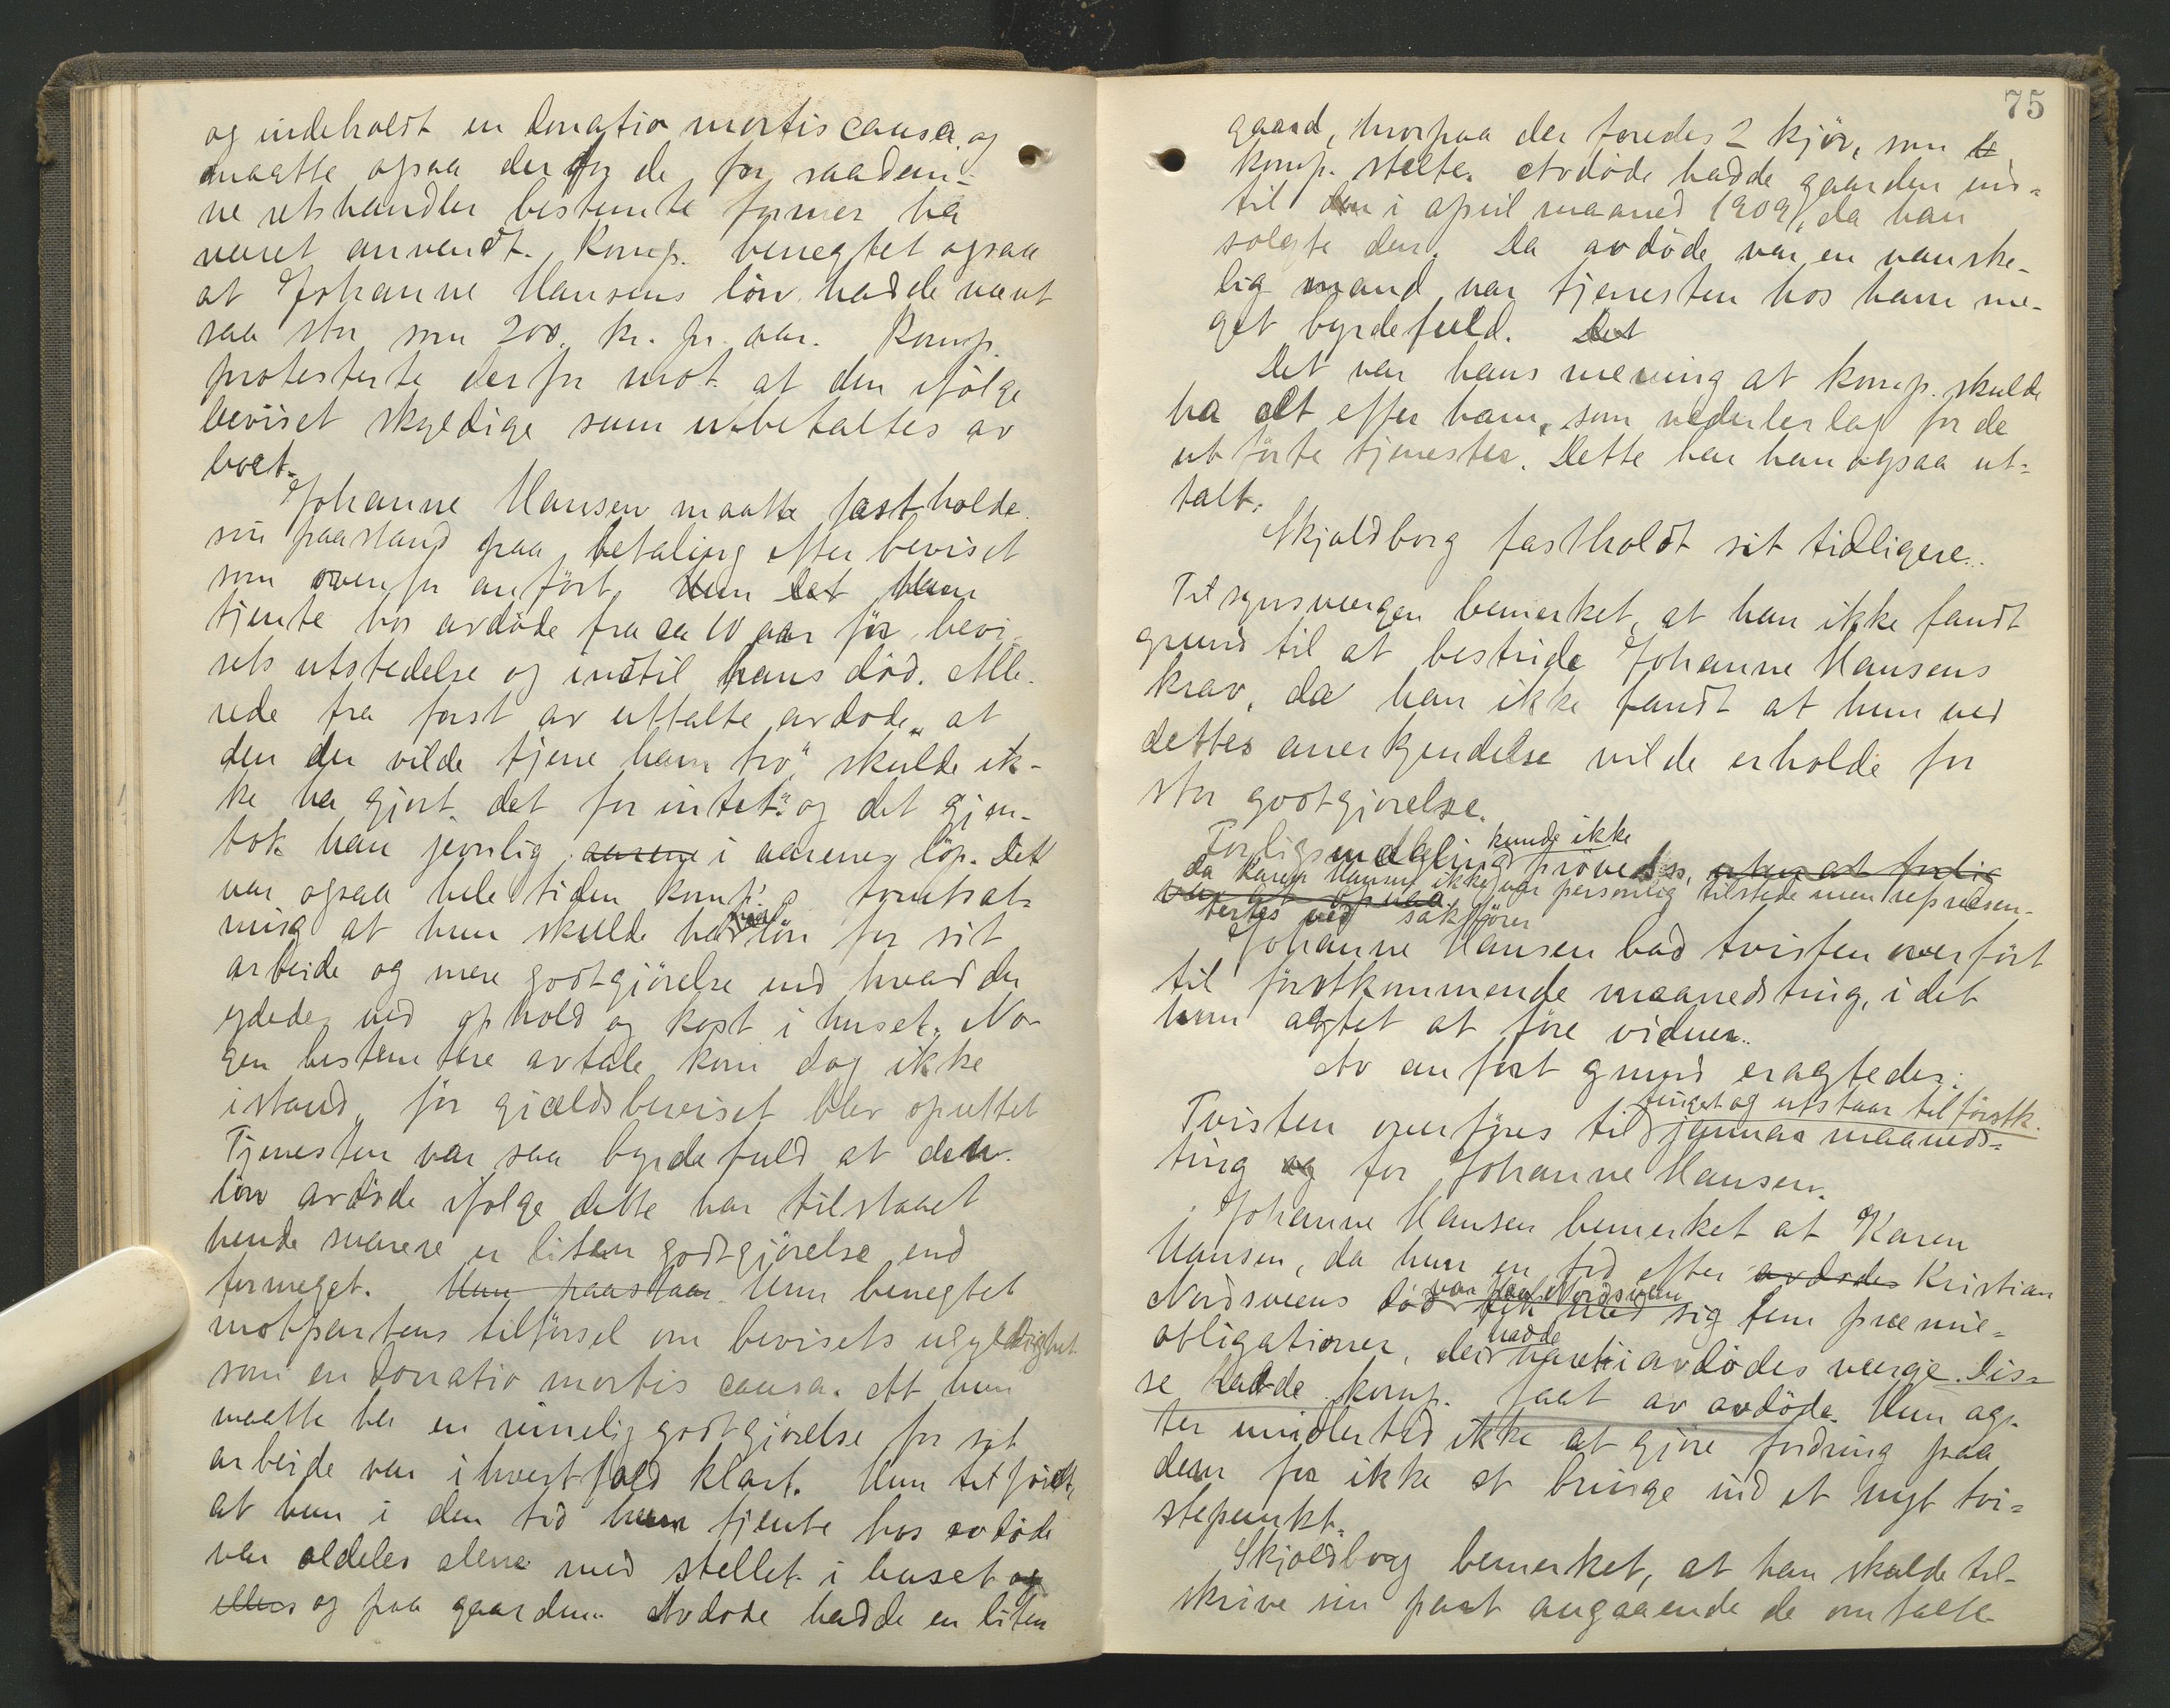 og indeholdt en donatio mortis causa. og
maatte ogsaa derfor de for saadan-
ne retshandler bestemte former ha
været anvendt. Komp. benegtet ogsaa
at Johanne Hansens lön hadde været
saa stor som 200 kr. pr. aar. Komp.
protesterte derfor mot at den ifölge
beviset skyldige sum utbetaltes av
boet.
Johanne Hansen maatte fastholde
sin paastand paa betaling efter beviset
som ovenfor anfört. Hun
tjente hos avdöde fra ca 10 aar för bevi-
sets utstedelse og indtil hans död. Alle-
rede fra först av uttalte avdöde „at
den der vilde tjene ham tro" skulde ik-
ke ha gjort det for intet" og det gjen-
tok han jevnlig aarene i aarenes löp. Det
var ogsaa hele tiden komp.s forutsæt-
ning at hun skulde ha lön for sit
arbeide og mere godtgjörelse end hvad der
ydedes ved ophold og kost i huset. No-
gen bestemtere avtale kom dog ikke
istand, för gjældsbeviset blev oprettet
Tjenesten var saa byrdefuld at den
lön avdöde ifölge dette har tilstaaet
hende snarere er liten godtgjörelse end
formeget. Hun paastaar Hun benegtet
motpartens tilförsel om bevisets ugyldighet
som en donatio mortis causa. At hun
maatte ha en rimelig godtgjörelse for sit
arbeide var i hvert fald klart. Hun tilföiet,
at hun i den tid hun tjente hos avdöde
var aldeles alene med stellet i huset og
ellers og paa gaarden. Avdöde hadde en liten
75
gaard, hvorpaa der foredes 2 kjör, som
komp. stelte. Avdöde hadde gaarden ind-
til den i april maaned 1909, da han
solgte den. Da avdöde var en vanske-
lig mand var tjenesten hos ham me-
get byrdefuld. Det
Det var hans mening at komp. skulde
ha alt efter ham, som vederlag for de
utförte tjenester. Dette har han ogsaa ut-
talt.
Skjoldborg fastholdt sit tidligere.
Tilsynsvergen bemerket, at han ikke fandt
grund til at bestride Johanne Hansens
krav, da han ikke fandt at hun ved
dettes anerkjendelse vilde erholde for
stor godtgjørelse.
kunde ikke
Forligsmegling pröves, uten at forlig
da Karen Hansen ikke var personlig tilstede men repræsen-
var at opnaa
tertes ved sakförer
Johanne Hansen bad tvisten overfört
til förstkommende maanedsting, idet
hun agtet at före vidner.
Av anfört grund eragtedes:
tinget og utstaar til förstk.
Tvisten overföres til januar maaneds-
ting og for Johanne Hansen.
Johanne Hansen bemerket at Karen
Hansen, da hun en tid efter avdödes Kristian
var paa Nordsveen
Nordsveens död fik med sig fem præmie-
hadde
obligationer, der været i avdödes værge. Dis-
se hadde komp. faat av avdöde. Hun ag-
ter imidlertid ikke at gjöre fordring paa
dem for ikke at bringe ind et nyt tvi-
stepunkt.
Skjoldborg bemerket, at han skulde til-
skrive sin part angaaende de omtalte